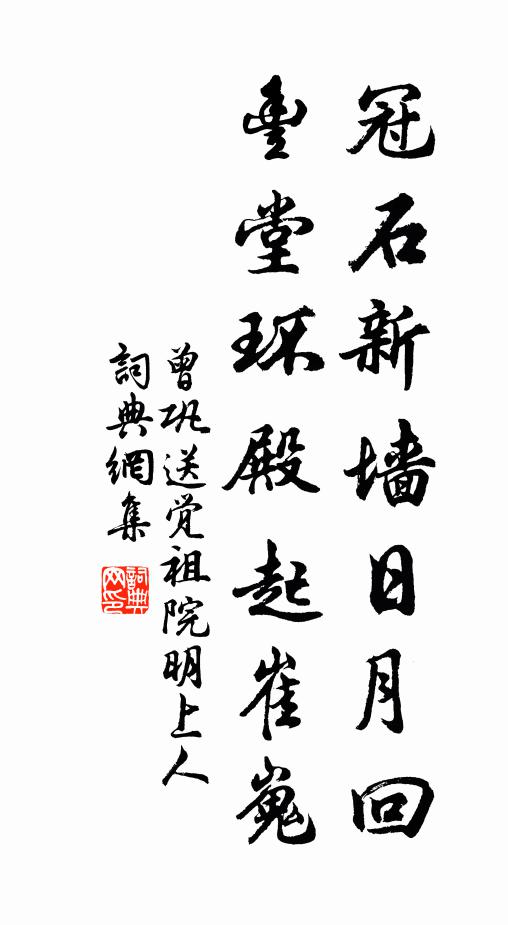 冠石新墙日月回
豊堂环殿起崔嵬
曾巩送觉祖院明上人
詞典網集
詞典网印